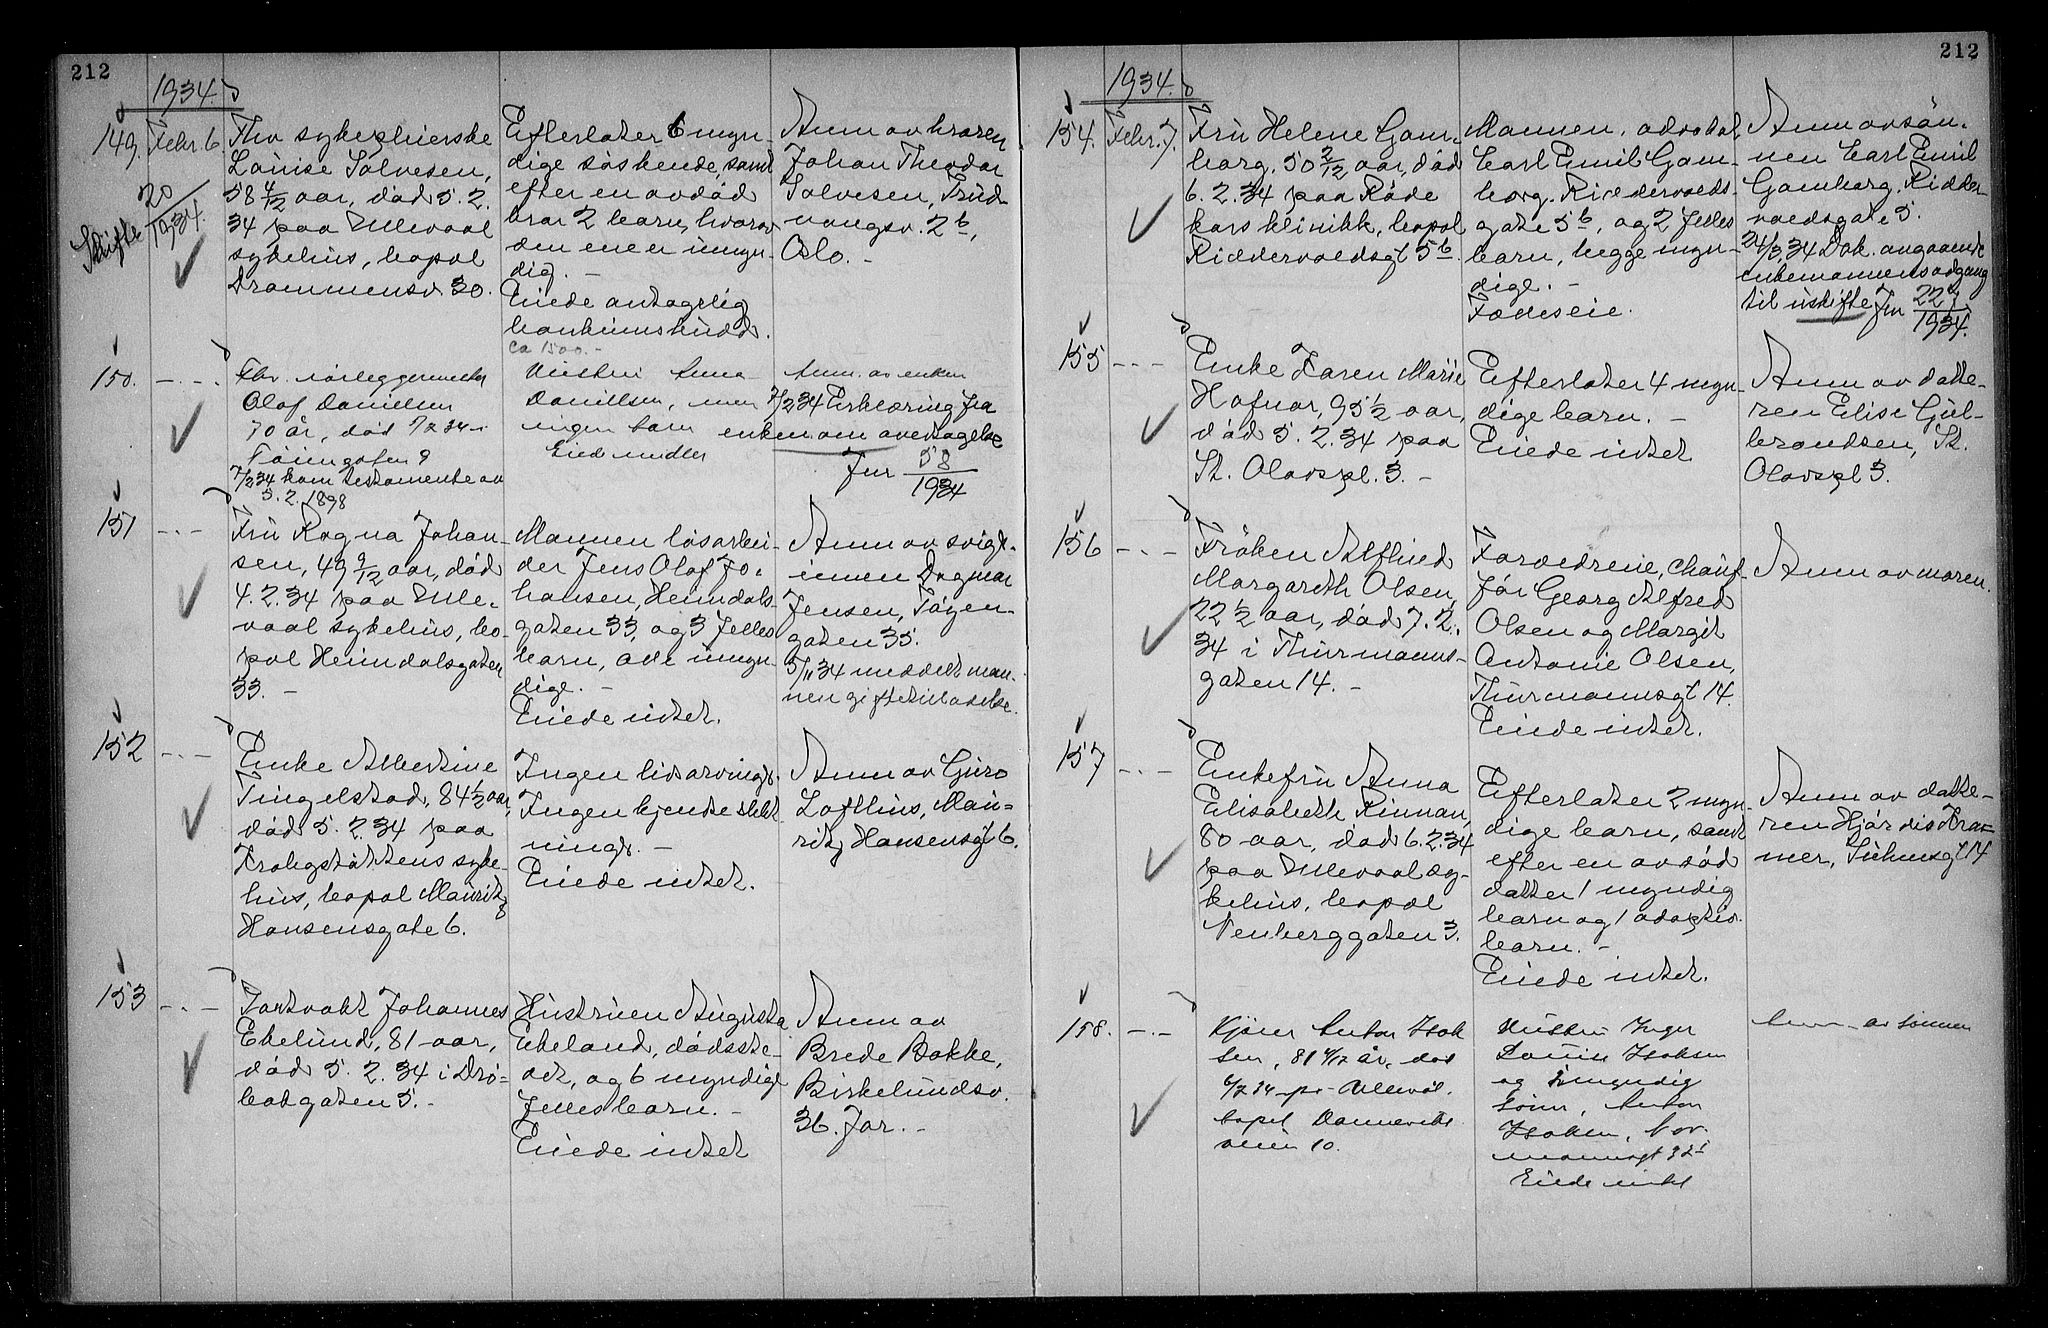 212
1934.
149. Febr. 6.
Skifte 20/1934.
Fhv sykepleierske
Louise Salvesen,
58 4/12 aar, död 5. 2.
34 paa Ullevaal
sykehus, bopæl
Drammensv. 30.
Efterlater 6 myn-
dige söskende, samt
efter en avdöd
bror 2 barn, hvorav
den ene er umyn-
dig. -
Eiede antagelig
bankinnskudd.
ca 1500.-
Anm av broren
Johan Theodor
Salvesen, Trud-
vangsv. 2b,
Oslo. -
150. - . - .
Fhv. rörleggermester
Olaf Danielsen
70 år, död
Töiengaten 9
7/2 34 kom testamente av
5. 2. 1898
Hustru Anna
Danielsen, men
ingen barn
Eied midler
Anm. av enken
7/2 34 Erklæring fra
enken om overtagelse
Jnr 58/1934
151 - . -
Fru Ragna Johan-
sen, 49 9/12 aar, död
4. 2. 34 paa Ulle-
vaal sykehus, bo-
pæl Heimdalsgaten
33. -
Mannen lösarbei-
der Jens Olaf Jo-
hansen, Heimdals-
gaten 33, og 3 felles
barn, alle umyn-
dige. -
Eiede intet.
Anm av svigr.
innen Dagmar
Jensen, Töyen-
gaten 35.
5/11 34 meddelt man-
nen giftetilladelse.
152 - . -
Enke Albertine
Tingelstad, 84 1/2 aar,
död 5. 2. 34 paa
Krohgstöttens syke-
hus, bopæl Mauritz
Hansensgate 6.
Ingen livsarvinger.
Ingen kjente slekt-
ninger. -
Eiede intet.
Anm av Guro
Lofthus, Mau-
ritz Hansensgt 6.
153 - . -
Portvakt Johannes
Ekelund, 81 aar,
död 5. 2. 34 i Drö-
bakgaten 5. -
Hustruen Augusta
Ekeland, dödsste-
det, og 6 myndige
fellesbarn. -
Eiede intet
Anm av
Brede Bakke,
Birkelundsv.
36. Jar. -
212
1934.
154. Febr. 7.
Fru Helene Gam-
borg, 50 2/12 aar, död
6. 2. 34 paa Röde
kors klinikk, bopæl
Riddervoldsgt 5b.
Mannen, advokat
Carl Emil Gam-
borg, Riddervolds-
gate 5b, og 2 felles
barn, begge myn-
dige. -
Fælleseie.
Anm av sön-
nen Carl Emil
Gamborg, Ridder-
voldsgate 5.
24/3 34 Dok. angaaende
enkemannens adgang
til uskifte Jnr 227/1934.
155 - - -
Enke Karen Marie
Hofnar, 95 1/2 aar,
död 5. 2. 34 paa
St. Olavspl. 3. -
Efterlater 4 myn-
dige barn. -
Eiede intet
Anm av datte-
ren Elise Gul-
brandsen, St.
Olavspl 3.
156 - . -
Fröken Alfhild
Margareth Olsen,
22 1/2 aar, död 7. 2.
34 i Thurmanns-
gaten 14. -
Forældrene, chauf-
för Georg Alfred
Olsen og Margit
Antonie Olsen,
Thurmannsgt 14.
Eiede intet.
Anm av moren.
157 - . -
Enkefru Anna
Elisabeth Rinnan,
80 aar, död 6. 2. 34
paa Ullevaal sy-
kehus, bopæl
Nenberggaten 3.
Efterlater 2 myn-
dige barn, samt
efter en avdöd
datter 1 myndig
barn og 1 adoptiv-
barn. -
Eiede intet.
Anm av datte-
ren Hjördis Kra-
mer, Suhmsgt 14
158. - . -
Kjörer Anton Isak
sen, 81 4/12 år, död
6/2 34 på Ullevål.
bopel Dannevirks
veien 10.
Hustru Inger
Louise Isaksen
og myndig
sönn, Anton
Isaksen, Nor-
mannsgt
Eiede intet
Anm av sönnen